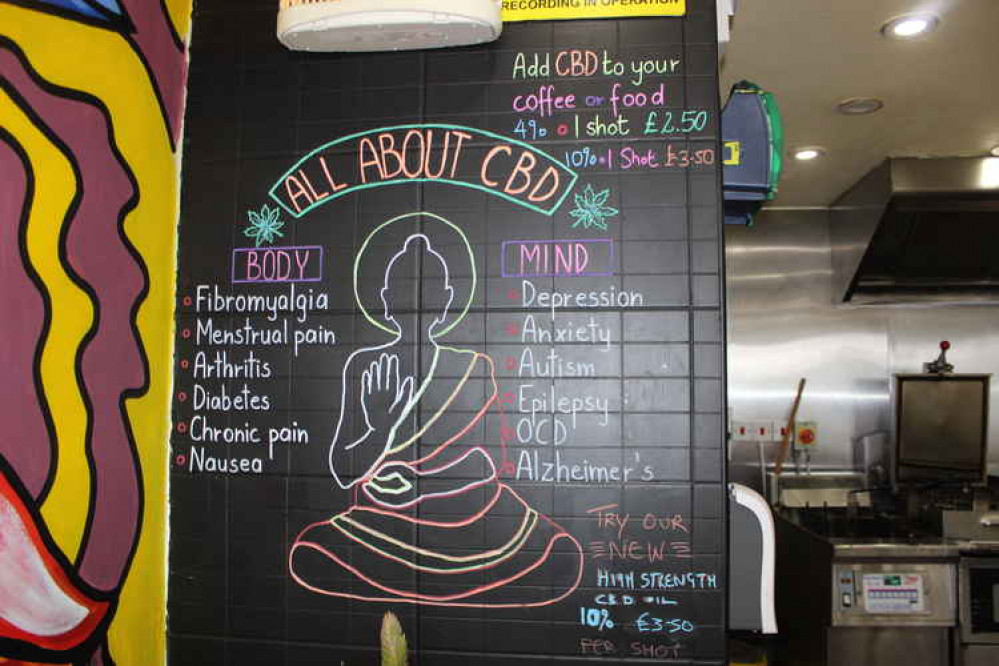 RECORDING IN OPERATION
Add CBD to your
coffee or food
4% 1 shot £2.50
10% 1 Shot £3.50
ALL ABOUT CBD
BODY
Fibromyalgia
Menstrual pain
Arthritis
Diabetes
Chronic pain
Nausea
MIND
Depression
Anxiety
Autism
Epilepsy
OCD
Alzheimer's
TRY OUR
NEW
HIGH STRENGTH
CBD OIL
10% £3.50
PER SHOT